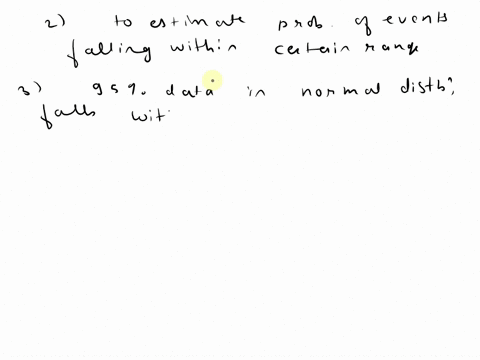 2) to estimate prob. of events
falling within certain range
3) 95% data in normal distbⁿ,
falls wit